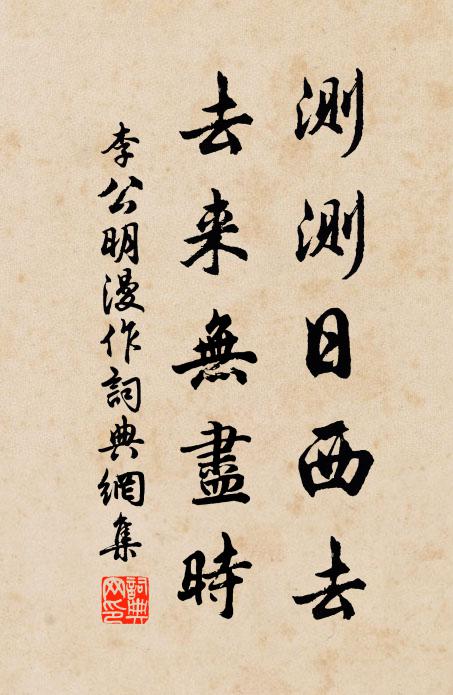 測測日西去
去来無盡時
李公明漫作詞典網集
詞典